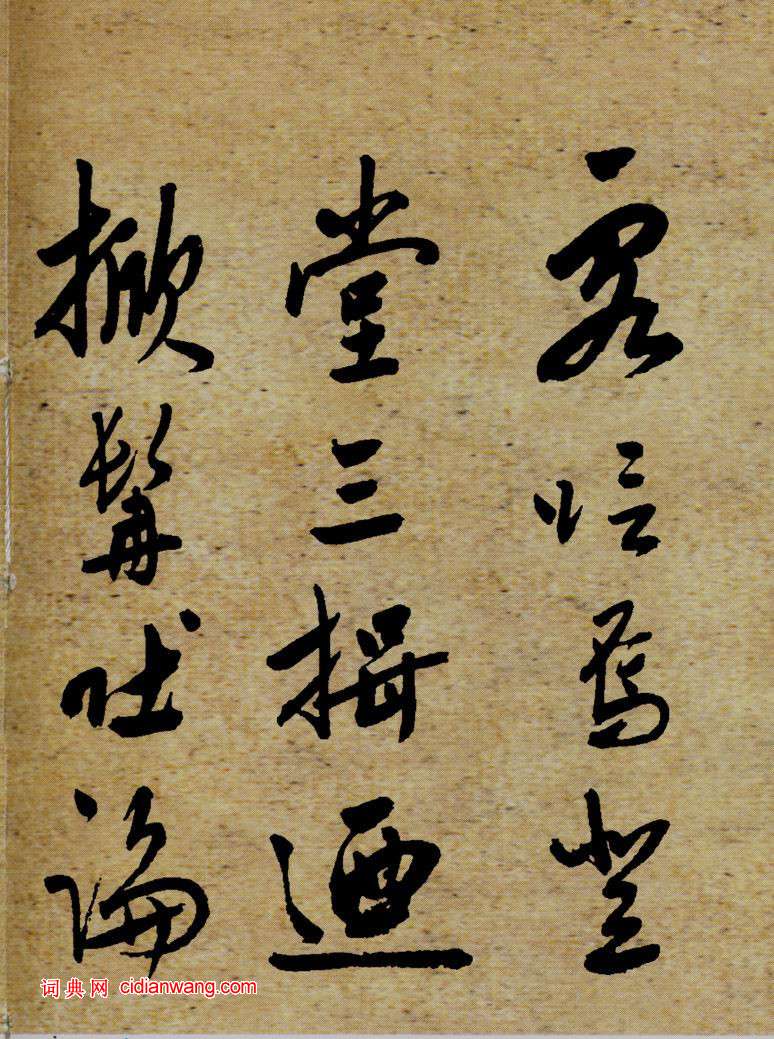 客唁焉登
堂三揖迺
掀髯吐論
词典网 cidianwang.com